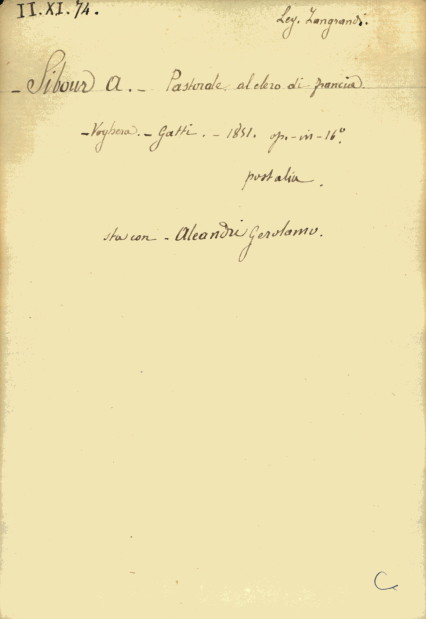 II.XI.74.
Leg. Zangrandi.
- Sibour A. - Pastorale al clero di Francia.
- Voghera. - Gatti. - 1851. op. - in - 16°.
post alia.
sta con - Aleandri Gerolamo.
C